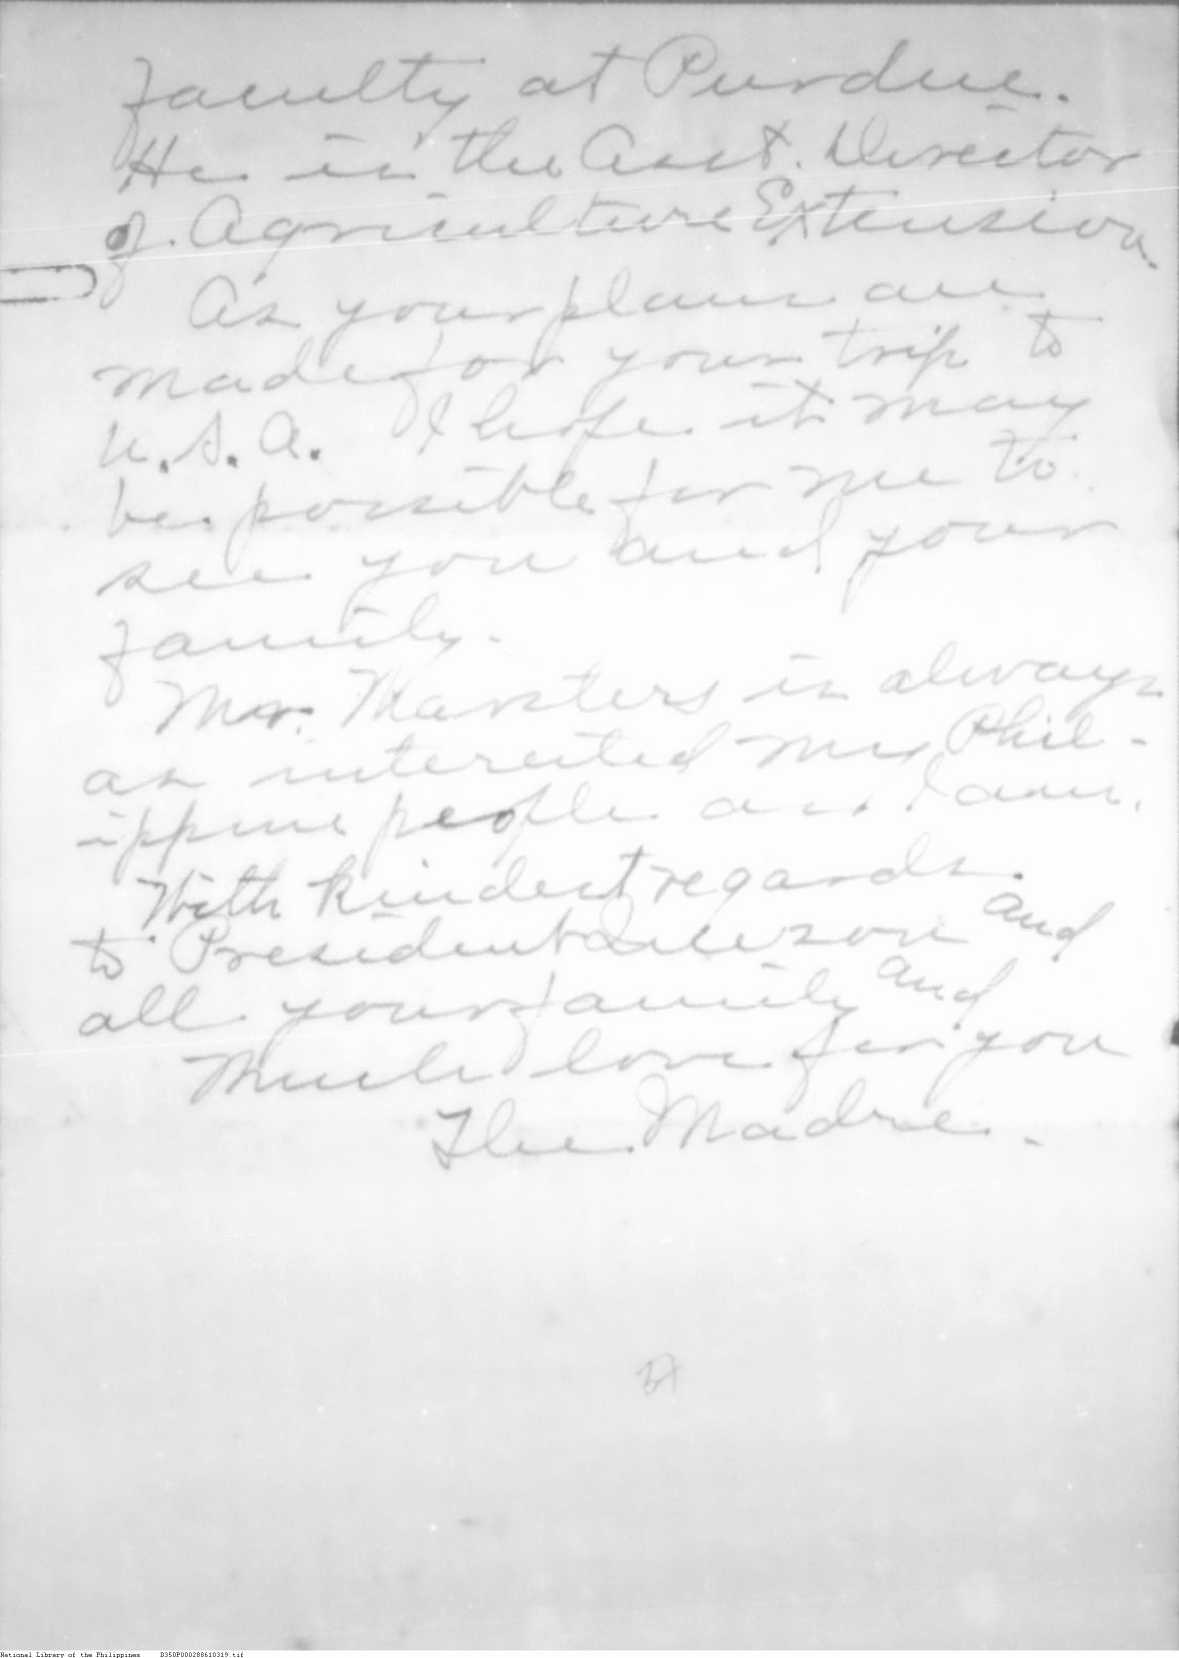 faculty at Purdue.
He is the Asst. Director
of Agriculture Extension.
As your plans are
made for your trip to
U.S.A. I hope it may
be possible for me to
see you and your
family.
Mr. Marsters is always
as interested my Phil-
ippine people as I am.
With kindest regards
to President Quezon and
all your family and
Much love for you
The Madre.
National Library of the Philippines D350P000288610319.tif